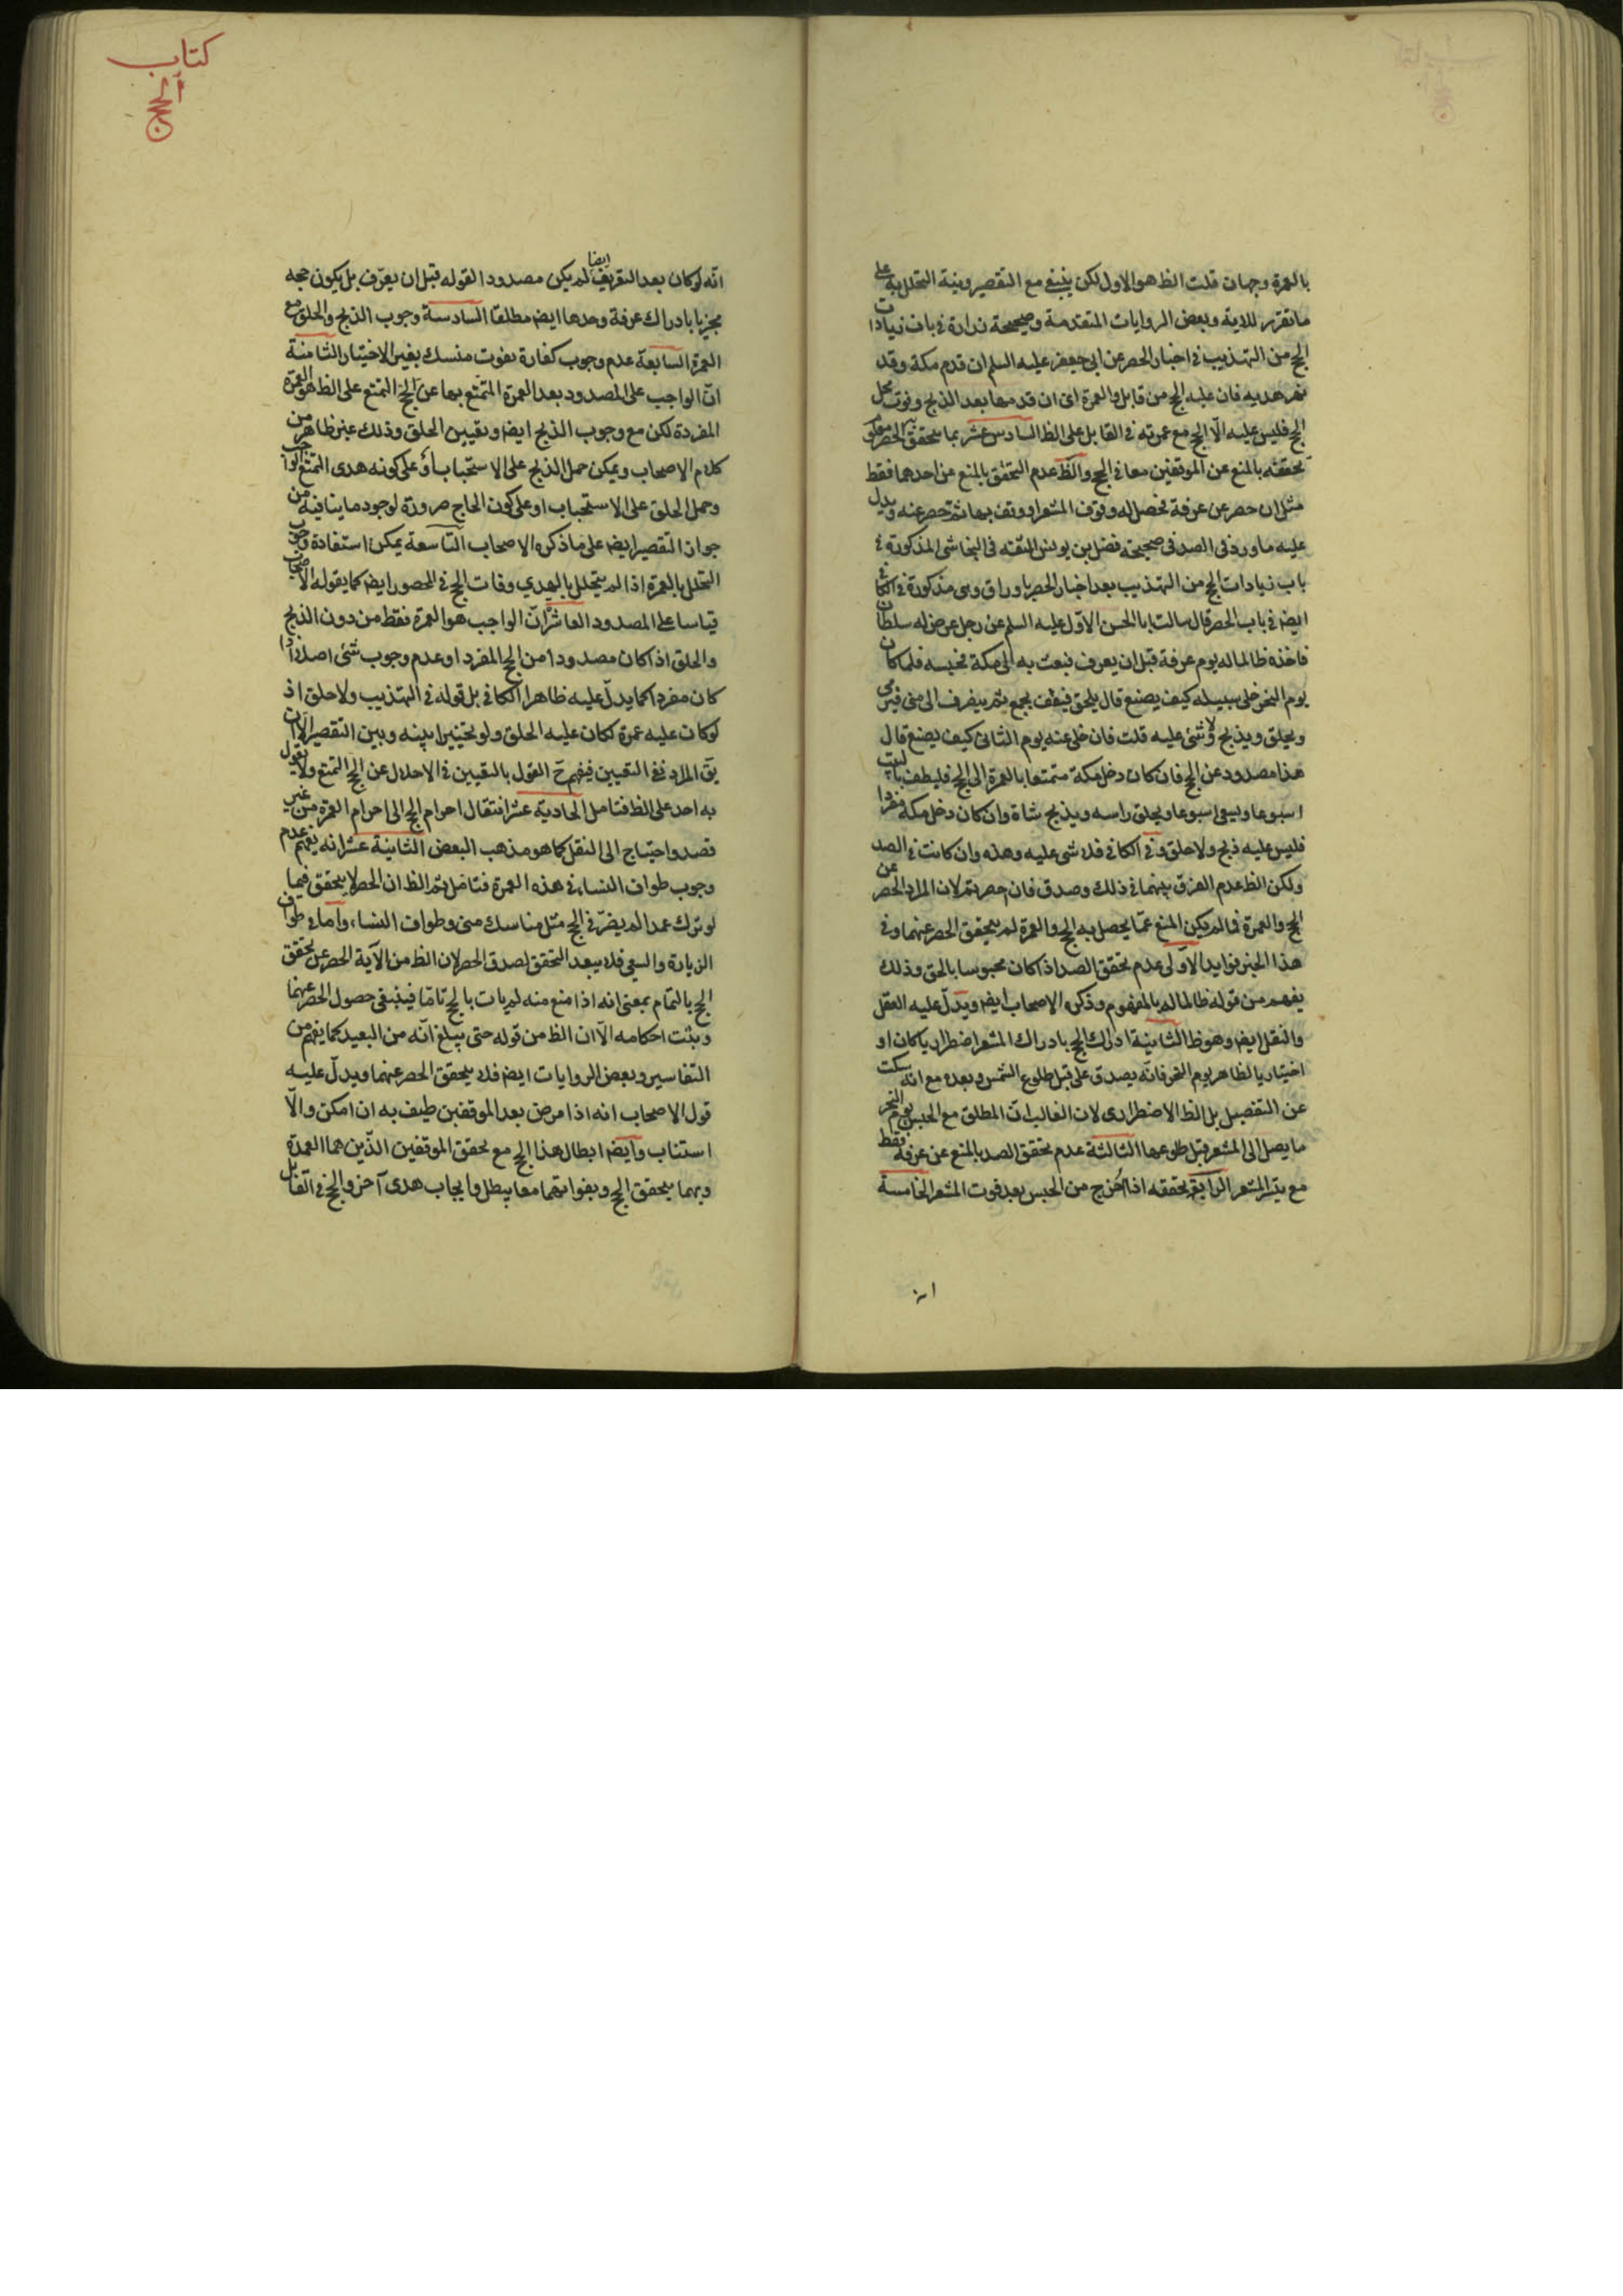 بالعمرة وجهان قلت الظ هو الاول لكن ينبغي مع التقصير ونية التحلل به على
ما تقرر للاية وبعض الروايات المتقدمة وصحيحة زرارة في باب زيادات
الحج من التهذيب في اخبار الحصر عن ابي جعفر عليه السلم ان قدم مكة وقد
نحر هديه فان عليه الحج من قابل والعمرة اى ان قدمها بعد الذبح وفوت محل
الحج فليس عليه الّا الحج مع عمرته في القابل على الظ السادس عشر بما يتحقق الحصر
تحققه بالمنع عن الموقفين معا في الحج والظ عدم التحقق بالمنع عن احدهما فقط
مثل ان حصر عن عرفة فحصل له وقوف المشعر او وقف بها ثم حصر عنه ويدل
عليه ما ورد في الصد في صحيحة فضل بن يونس الثقه في النجاشي المذكورة في
باب زيادات الحج من التهذيب بعد اخبار الحصر باوراق وهي مذكورة في الكافي
ايضا في باب الحصر قال سالت ابا الحسن الاوّل عليه السلم عن رجل عرض له سلطان
فاخذه ظالما له يوم عرفة قبل ان يعرف فبعث به الى مكة فحبسه فلما كان
يوم النحر خلى سبيله كيف يصنع قال يلحق فيقف بجمع ثم ينصرف الى منى فيرمى
ويحلق ويذبح ولا شئ عليه قلت فان خلى عنه يوم الثانى كيف يصنع قال
هذا مصدود عن الحج فان كان دخل مكة متمتعا بالعمرة الى الحج فليطف بالبيت
اسبوعا ويسعى اسبوعا ويحلق راسه ويذبح شاة وان كان دخل مكة مفردا
فليس عليه ذبح ولا حلق وفي الكافي فلا شى عليه وهذه وان كانت في الصد
ولكن الظ عدم الفرق بينهما في ذلك وصدق فان حصرتم لان المراد الحصر عن
الحج والعمرة فما لم يكن المنع عمّا يحصل به الحج والعمرة لم يتحقق الحصر عنهما وفي
هذا الخبر فوايد الاولى عدم تحقق الصد اذا كان محبوسا بالحق وذلك
يفهم من قوله ظالما له بالمفهوم وذكره الاصحاب ايضا ويدلّ عليه العقل
والنقل ايضا وهو ظ الثانية ادراك الحج بادراك المشعر اضطراريا كان او
اختياريا لظاهر يوم النحر فانّه يصدق على قبل طلوع الشمس وبعده مع انه سكت
عن التفصيل بل الظ الاضطرارى لان الغالب انّ المطلق مع الحبس يوم النحر
ما يصل الى المشعر قبل طلوعها الثالثة عدم تحقق الصد بالمنع عن عرفة فقط
مع تيسّر المشعر الرابعة تحققه اذا اُخرج من الحبس بعد فوت المشعر الخامسة
كتاب
الحج
انّه لو كان بعد التعريف ايضا لم يكن مصدودا لقوله قبل ان يعرّف بل يكون حجه
مجزيا بادراك عرفة وحدها ايضا مطلقا السادسة وجوب الذبح والحلق مع
العمرة السابعة عدم وجوب كفارة بفوت منسك بغير الاختيار الثامنة
انّ الواجب على المصدود بعد العمرة المتمتع بها عن الحج التمتع على الظ هو العمرة
المفردة لكن مع وجوب الذبح ايضا وتعيين الحلق وذلك غير ظاهر من
كلام الاصحاب ويمكن حمل الذبح على الاستحباب أو على كونه هدى التمتع الواجب
وحمل الحلق على الاستحباب او على كون الحاج صرورة لوجود ما ينافيه من
جواز التقصير ايضا على ما ذكره الاصحاب التاسعة يمكن استفادة وجوب
التحلل بالعمرة اذا لم يتحلل بالهدي وفات الحج في المحصور ايضا كما يقوله الاصحاب
قياسا على المصدود العاشر انّ الواجب هو العمرة فقط من دون الذبح
والحلق اذا كان مصدودا من الحج المفرد او عدم وجوب شئ اصلا اذا
كان مفردا كما يدلّ عليه ظاهر الكافي بل قوله في التهذيب ولا حلق اذ
لو كان عليه عمرة لكان عليه الحلق ولو تخييرا بينه وبين التقصير الّا ان
يق المراد نفي التعيين فيفهم ح القول بالتعيين في الاحلال عن الحج التمتع ولا يقول
به احد على الظ فتامل الحادية عشر انتقال احرام الحج الى احرام العمرة من غير
قصد واحتياج الى النقل كما هو مذهب البعض الثانية عشر انه يفهم عدم
وجوب طواف النساء في هذه العمرة فتامل ثم الظ ان الحصر لا يتحقق فيما
لو ترك عمدا لم يضرّ في الحج مثل مناسك منى وطواف النساء واما في طواف
الزيارة والسعي فلا يبعد التحقق لصدق الحصر لان الظ من الآية الحصر عن تحقق
الحج بالتمام بمعنى انه اذا منع منه لم يات بالحج تامّا فينبغى حصول الحصر عنهما
وبثت احكامه الّا ان الظ من قوله حتى يبلغ انّه من البعيد كما يفهم من
التفاسير وبعض الروايات ايضا فلا يتحقق الحصر عنهما ويدلّ عليه
قول الاصحاب انه اذا مرض بعد الموقفين طيف به ان امكن والّا
استناب وايضا ابطال هذا الحج مع تحقق الموقفين الذّين هما العمدة
وبهما يتحقق الحج وبفواتهما معا يبطل وايجاب هدى آخر والحج في القابل